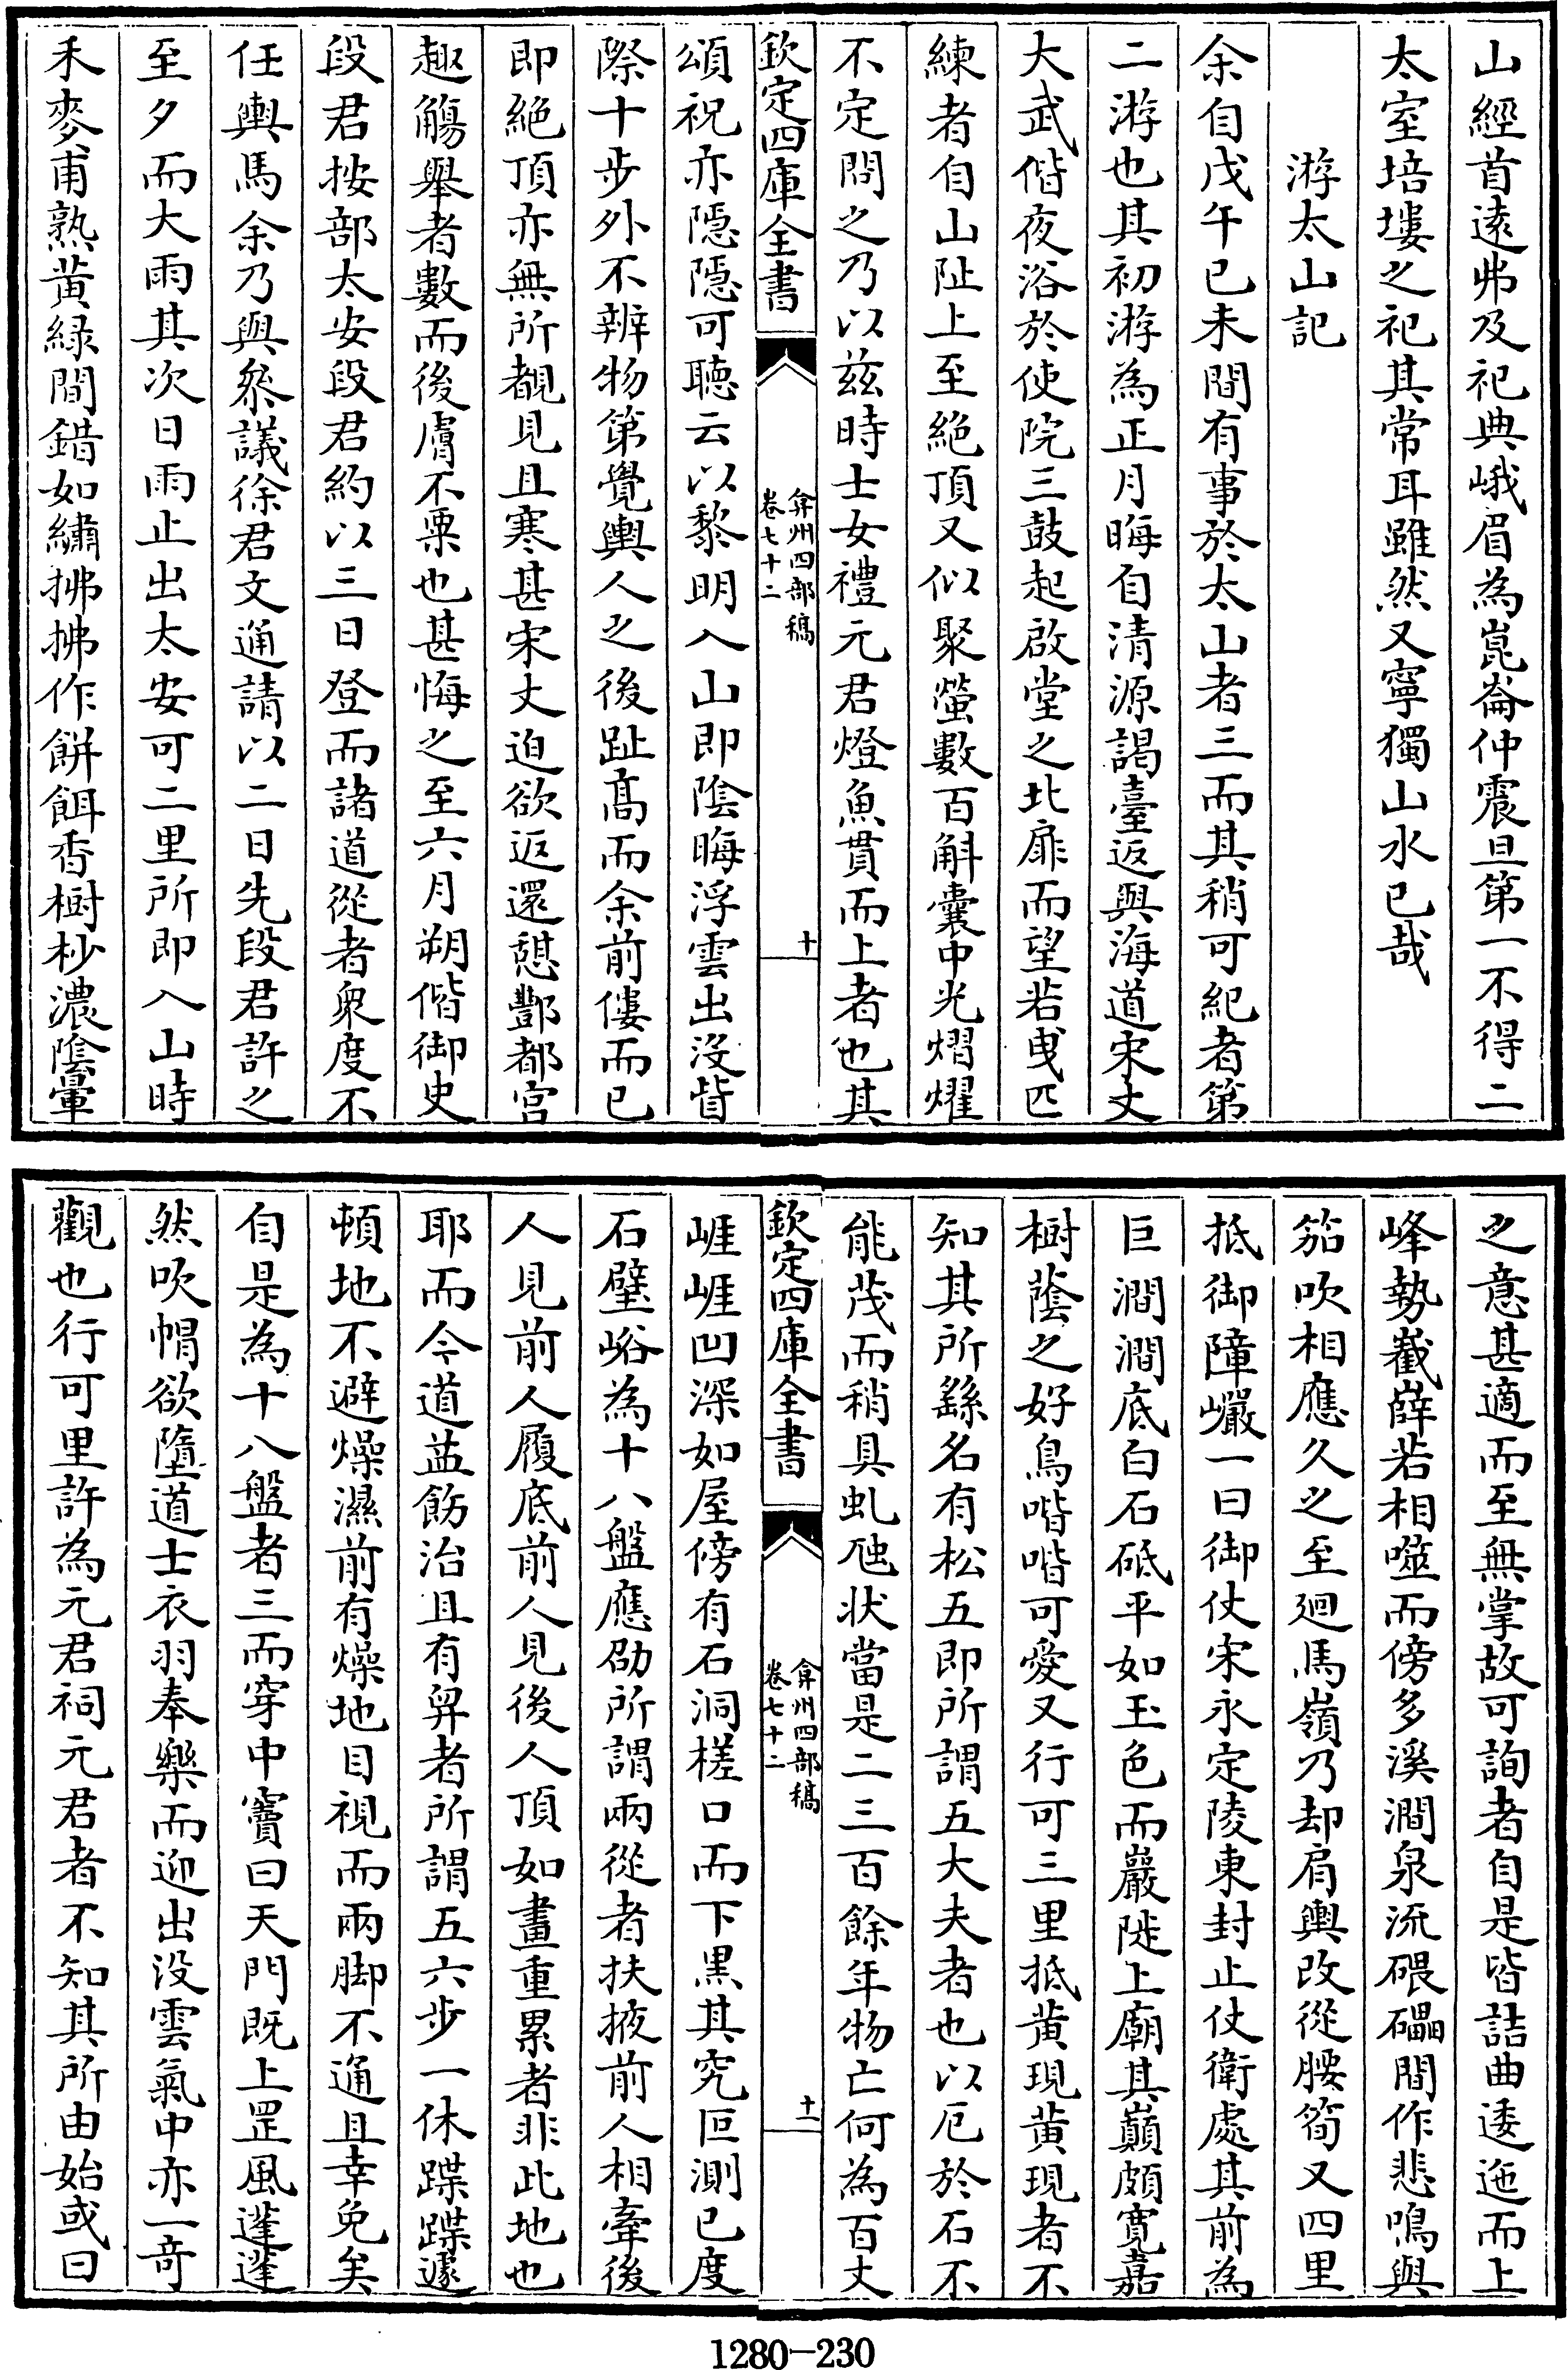 山經首逺弗及祀典峨眉為崑崙仲震旦第一不得二
太室培塿之祀其常耳雖然又寧獨山水已哉
游太山記
余自戊午已未間有事於太山者三而其稍可紀者第
二游也其初游為正月晦自清源謁臺返與海道宋丈
大武偕夜浴於使院三鼓起啟堂之北扉而望若曵匹
練者自山阯上至絶頂又似聚螢數百斛囊中光熠燿
不定問之乃以兹時士女禮元君燈魚貫而上者也其
欽定四庫全書
弇州四部稿
卷七十二
十
頌祝亦隱隱可聽云以黎明入山即陰晦浮雲出沒眥
際十步外不辨物第覺輿人之後趾髙而余前僂而已
即絶頂亦無所覩見且寒甚宋丈迫欲返還憇酆都宫
趣觴舉者數而後膚不粟也甚悔之至六月朔偕御史
段君按部太安段君約以三日登而諸道從者衆度不
任輿馬余乃與叅議徐君文通請以二日先段君許之
至夕而大雨其次日雨止出太安可二里所即入山時
禾麥甫熟黄緑間錯如繡拂拂作餅餌香樹杪濃陰暈
之意甚適而至無掌故可詢者自是皆詰曲逶迤而上
峰勢嶻嶭若相噬而傍多溪澗泉流碨礧間作悲鳴與
笳吹相應久之至廻馬嶺乃却肩輿改從腰筍又四里
抵御障巗一曰御仗宋永定陵東封止仗衛處其前為
巨澗澗底白石砥平如玉色而巖陡上廟其巔頗寛嘉
樹蔭之好鳥喈喈可愛又行可三里抵黄現黄現者不
知其所繇名有松五即所謂五大夫者也以厄於石不
能茂而稍具虬虺状當是二三百餘年物亡何為百丈
欽定四庫全書
弇州四部稿
卷七十二
十一
崕崕凹深如屋傍有石洞槎口而下黒其究叵測已度
石壁峪為十八盤應劭所謂兩從者扶掖前人相牽後
人見前人履底前人見後人頂如畫重累者非此地也
耶而今道益飭治且有舁者所謂五六步一休蹀蹀遽
頓地不避燥濕前有燥地目視而兩脚不通且幸免矣
自是為十八盤者三而穿中中竇曰天門既上罡風蓬蓬
然吹帽欲墮道士衣羽奉樂而迎出没雲氣中亦一竒
觀也行可里許為元君祠元君者不知其所由始或曰
1280-230